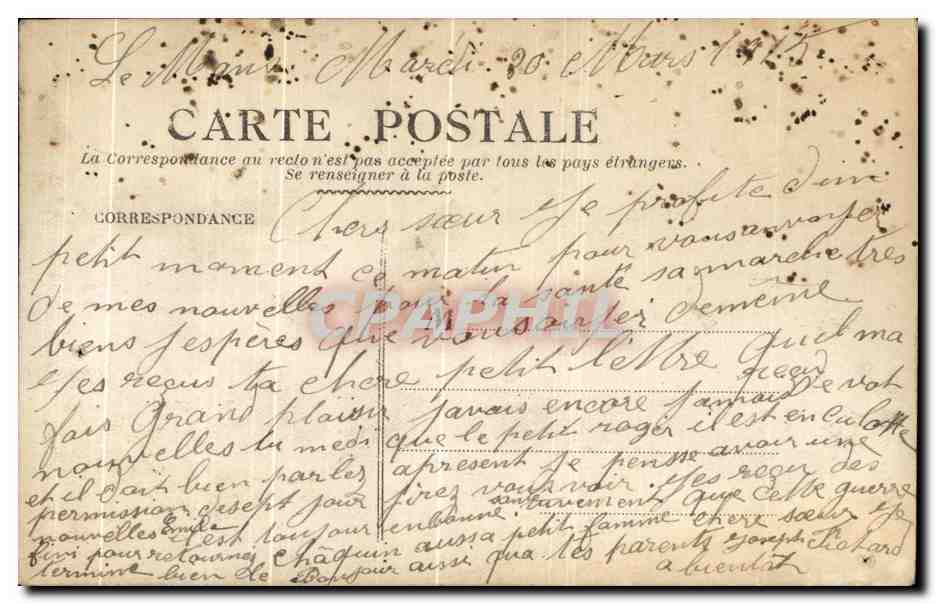 Le Mans Mardi 30 Mars 1915
CARTE POSTALE
La Correspondance au recto n'est pas acceptée par tous les pays étrangers.
Se renseigner à la poste.
CORRESPONDANCE
Cher sœur Je profite d'un
petit moment ce matin pour vous anvoyer
de mes nouvelles pour la santé sa marche tres
biens J'espères que vous soiyer de même
J'es reçus ta chere petit lettre quil ma
fais Grand plaisir javais encore jamais reçu
de vot nouvelles tu me di que le petit roger il est en culotte
et il doit bien parler apresent Je pense avoir une
permission de sept jour firez vous voir J'es reçu des
nouvelles Emile c'est toujour en bonne santé vivement que cette guerre
fini pour retournes chaquin aussa petit famme chere sœur Je
termine bien le Bonjour aissi qua tes parents Joseph
a bientôt
CPAPHIL